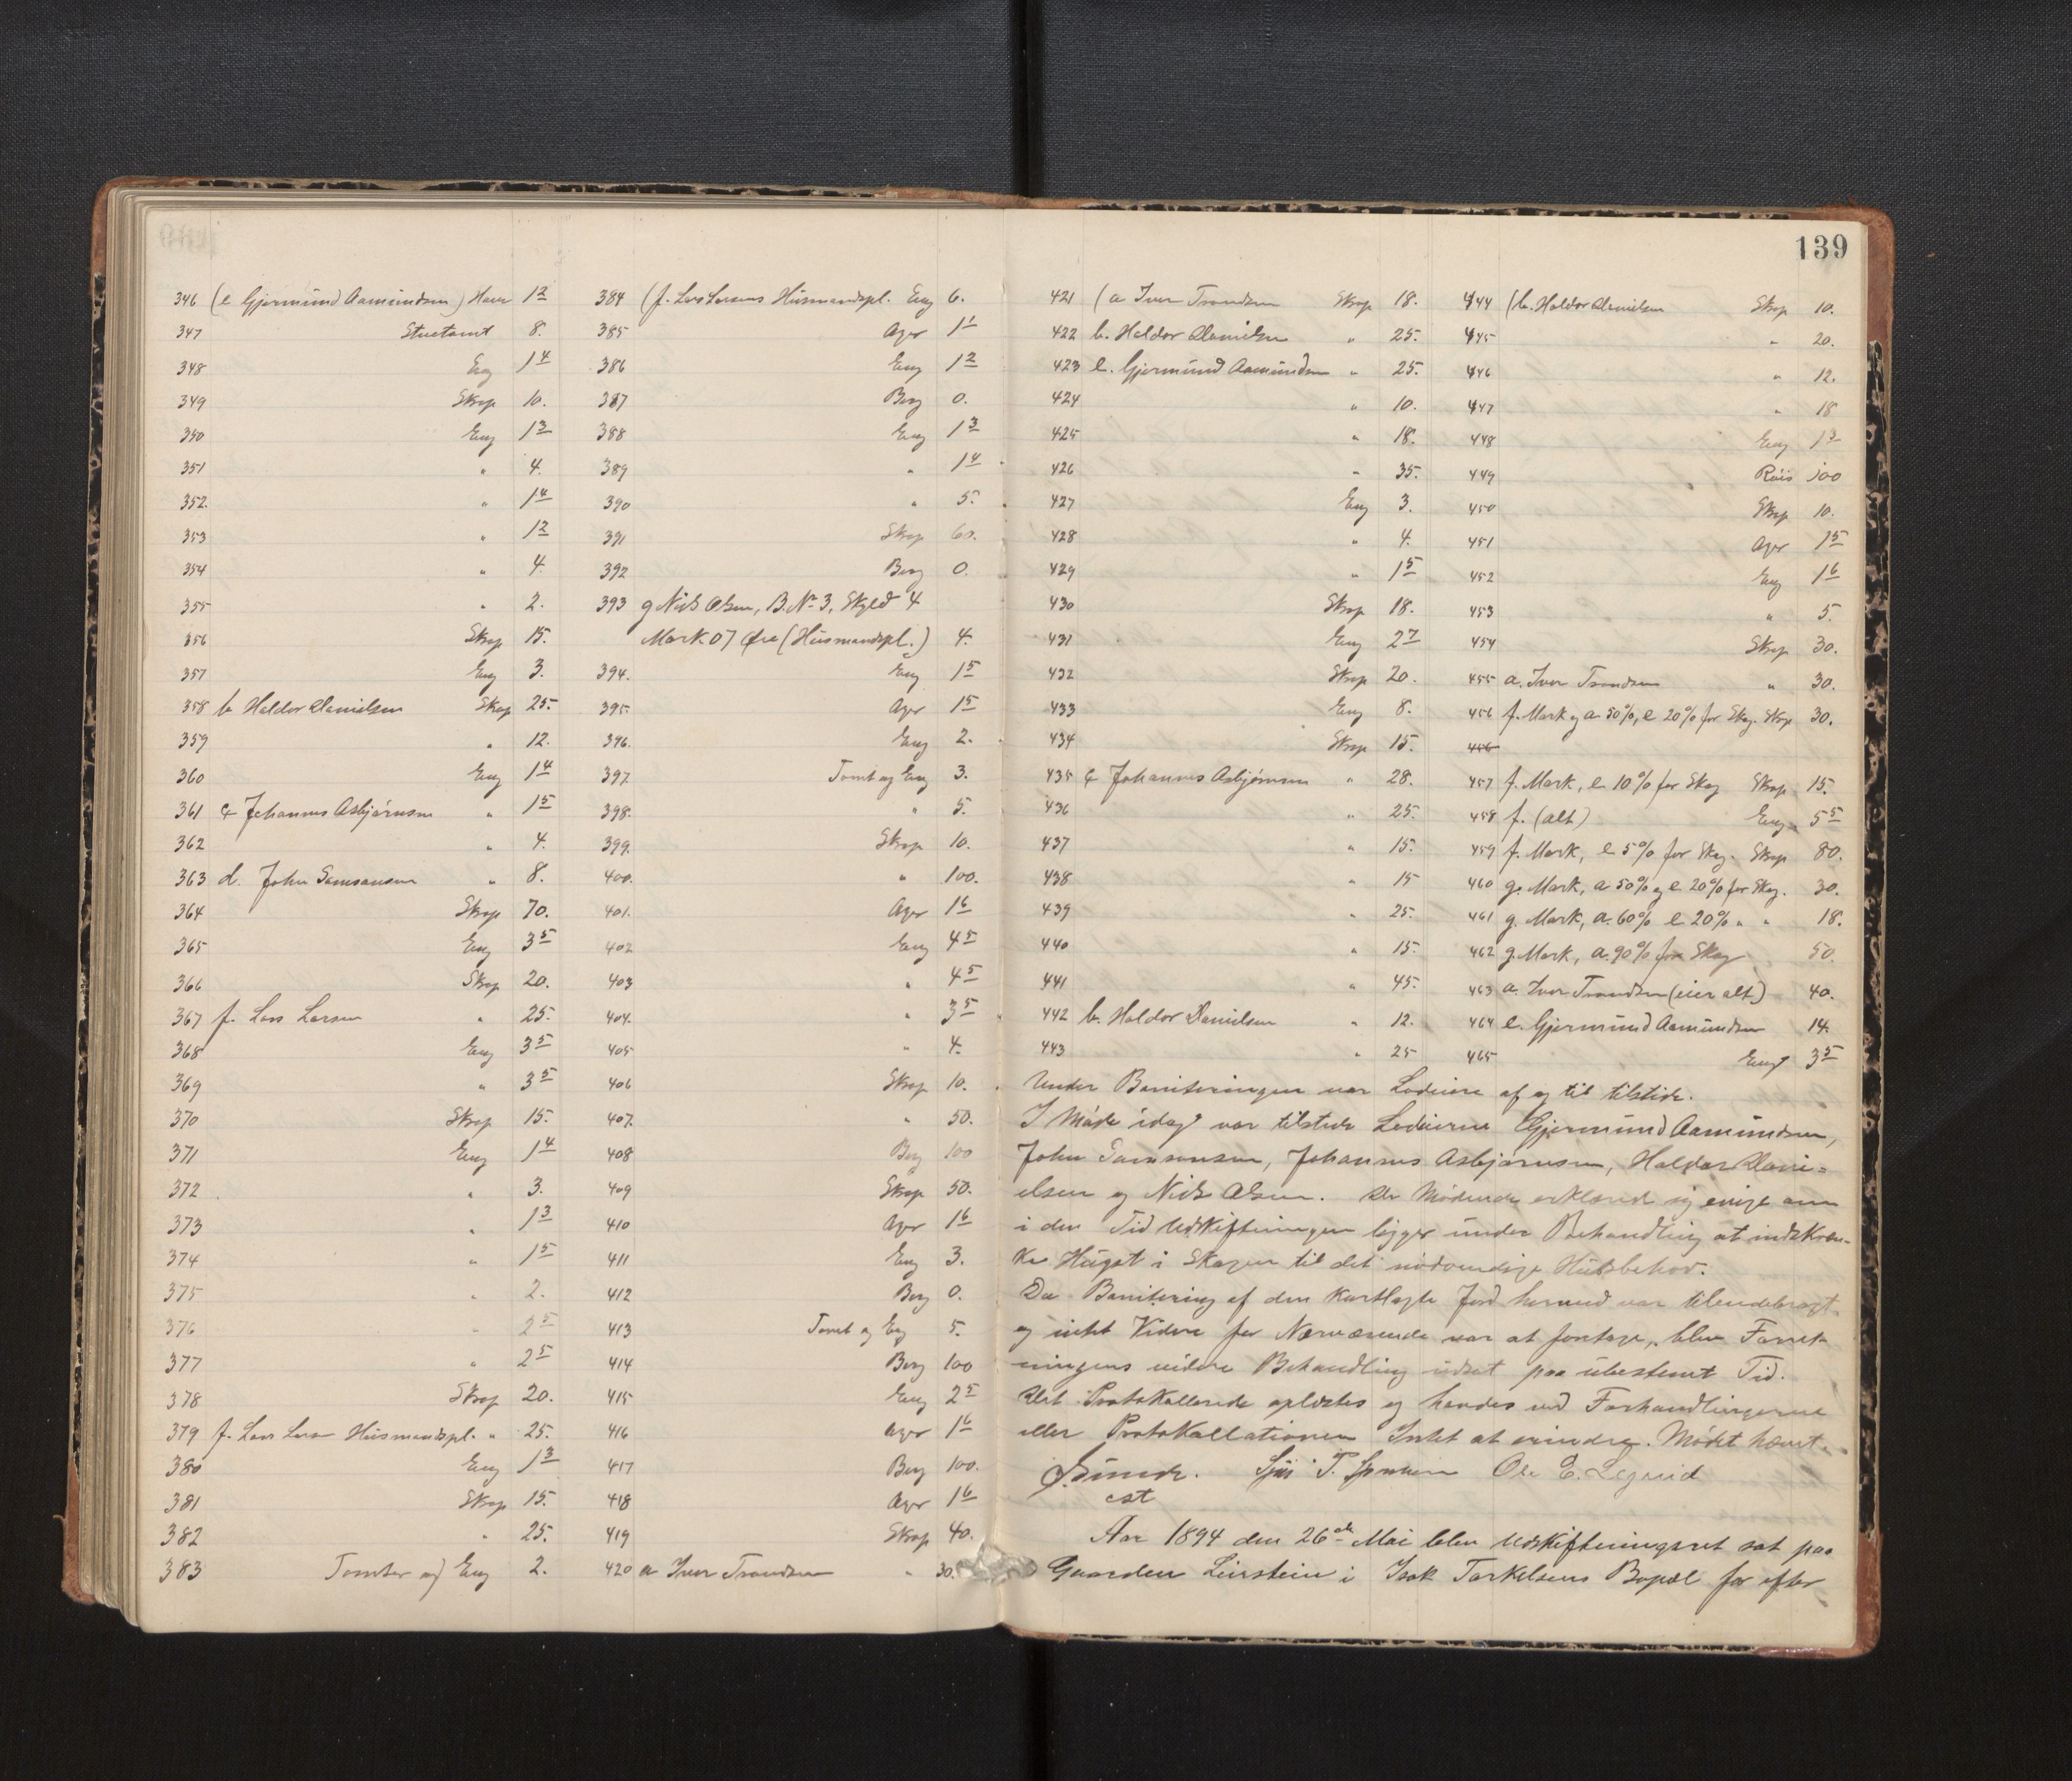 139
346 (e Gjermund Aamundsen) Have 1 2
347 Stuetomt 8.
348 Eng 1 4
349 Skog 10.
350 Eng 1 3
351 " 4.
352. " 1 4
353 " 1 2
354 " 4
355 " 2.
356 Skog 15.
357 Eng 3.
358 b Haldor Danielsen Skog 25.
359 " 12.
360 Eng 1 4
361 c Johannes Asbjørnsen " 1 5
362 " 4.
363 d. John Samsonsen " 8.
364 Skog 70.
365 Eng 3 5
366 Skog 20.
367 f. Lars Larsen " 25.
368 Eng 3 5
369 " 3 5
370 Skog 15.
371 Eng 1 4
372 " 3.
373 " 1 3
374 " 1 5
375 " 2.
376 " 2 5
377 " 2 5
378 Skog 20.
379 f. Lars Lars Husmandspl. " 25.
380 Eng 1 3
381 Skog 15.
382 " 25.
383 Tomter og Eng 2.
384 (f. Lars Larsens Husmandspl. Eng 6.
385 Ager 1 1
386 Eng 1 2
387 Berg 0.
388 Eng 1 3
389 " 1 4
390 " 5.
391 Skog 60.
392 Berg 0.
393 g Nils Olsen, B.No 3, Skyld 4
Mark 07 Øre (Husmandspl.) 4.
394. Eng 1 5
395. Ager 1 5
396. Eng 2.
397. Tomt og Eng 3.
398. " 5.
399. Skog 10.
400. " 100.
401. Ager 1 6
402 Eng 4 5
403 " 4 5
404. " 3 5
405 " 4.
406 Skog 10.
407. " 50.
408 Berg 100
409 Skog 50.
410 Ager 1 6
411 Eng 3.
412 Berg 0.
413 Tomt og Eng 5.
414 Berg 100
415 Eng 2 5
416 Ager 1 6
417 Berg 100.
418 Ager 1 6
419 Skog 40.
420 a Iver Trondsen " 30.
421 (a Iver Trondsen Skog 18.
422 b. Haldor Danielsen " 25.
423 e. Gjermund Aamundsen " 25.
424 " 10.
425 " 18.
426 " 35.
427 Eng 3.
428 " 4.
429 " 1 5
430 Skog 18.
431 Eng 2 7
432 Skog 20.
433 Eng 8.
434 Skog 15.
435 c Johannes Asbjørnsen " 28.
436 " 25.
437 " 15.
438 " 15
439 " 25.
440 " 15.
441 " 45.
442 b. Haldor Danielsen " 12.
443 " 25
444 (b. Haldor Danielsen Skog 10.
445 " 20.
446 " 12.
447 " 18
448 Eng 1 3
449 Røis 100
450 Skog 10.
451 Ager 1 5
452 Eng 1 6
453 " 5.
454 Skog 30.
455 a. Iver Trondsen " 30.
456 f. Mark og a 50%, e 20% for Skog. Skog 30.
456
457 f. Mark, e 10% for Skog Skog 15.
458 f. (alt) Eng 5 5
459 f. Mark, e 5% for Skog. Skog 80.
460 g. Mark, a 50% og e 20% for Skog. 30.
461 g. Mark, a. 60% e 20% " " 18.
462 g. Mark, a. 90% for Skog 50.
463 a. Iver Trondsen (eier alt) 40.
464 e. Gjermund Aamundsen 14.
465 Eng 3 5
Under Boniteringen var Lodeiere af og til tilstede.
I Møde idag var tilstede Lodeierne Gjermund Aamundsen,
John Samsonsen, Johannes Asbjørnsen, Haldor Dani-
elsen og Nils Olsen. De Mødende erklæred sig enige om
i den Tid Udskiftningen ligger under Behandling at indskræn-
ke Hugst i Skogen til det nødvendige Husbehov.
Da Bonitering af den kartlagte Jord hermed var tilendebragt
og intet Videre for Nærværende var at foretage, blev Forret-
ningens videre Behandling udsat paa ubestemt Tid.
Det Protokollerede oplæstes og havdes ved Forhandlingerne
eller Protokollationen Intet at erindre. Mødet hævet.
Ole E. Legreid
cst
Aar 1894 den 26de Mai blev Udskiftningsret sat paa
Gaarden Leirstein i Isak Torkelsens Bopæl for efter